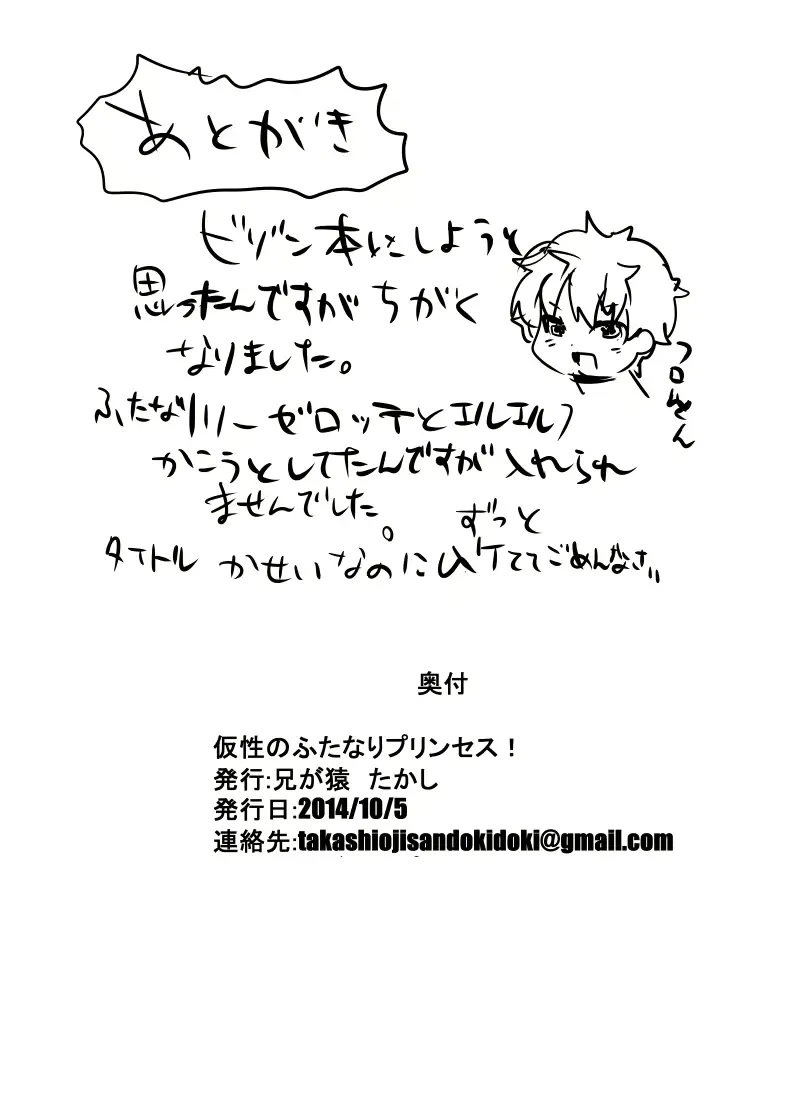 あとがき
ビゾン本にしようと
思ったんですがちがく
なりました。
ふたなりリーゼロッテとエルエルフ
かこうとしてたんですが入れられ
ませんでした。 ずっと
タイトル かせいなのにムケててごめんなさい
奥付
仮性のふたなりプリンセス！
発行:兄が猿 たかし
発行日:2014/10/5
連絡先:takashiojisandokidoki@gmail.com